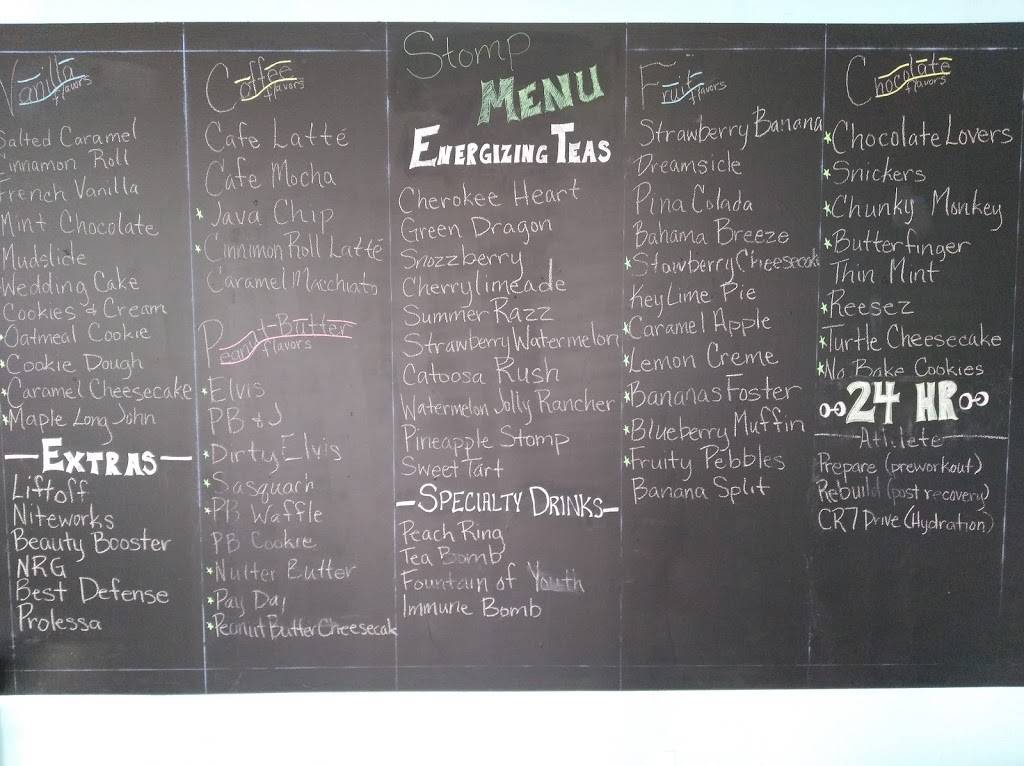 Vanilla
flavors
Salted Caramel
Cinnamon Roll
French Vanilla
Mint Chocolate
Mudslide
Wedding Cake
Cookies & Cream
*Oatmeal Cookie
*Cookie Dough
*Caramel Cheesecake
*Maple Long John
EXTRAS
Liftoff
Niteworks
Beauty Booster
NRG
Best Defense
Prolessa
Coffee
flavors
Cafe Latté
Cafe Mocha
*Java Chip
*Cinnimon Roll Latté
Caramel Macchiato
Peanut-Butter
flavors
*Elvis
PB & J
*Dirty Elvis
*Sasquach
*PB Waffle
PB Cookie
*Nutter Butter
*Pay Day
*Peanut Butter Cheesecak
Stomp
MENU
ENERGIZING TEAS
Cherokee Heart
Green Dragon
Snozzberry
Cherrylimeade
Summer Razz
Strawberry Watermelon
Catoosa Rush
Watermelon Jolly Rancher
Pineapple Stomp
Sweet Tart
-SPECIALTY DRINKS-
Peach Ring
Tea Bomb
Fountain of Youth
Immune Bomb
Fruit
flavors
Strawberry Banana
Dreamsicle
Pina Colada
Bahama Breeze
*Stawberry Cheesecak
Key Lime Pie
*Caramel Apple
*Lemon Creme
*Bananas Foster
*Blueberry Muffin
*Fruity Pebbles
Banana Split
Chocolate
flavors
*Chocolate Lovers
*Snickers
*Chunky Monkey
*Butterfinger
Thin Mint
*Reesez
*Turtle Cheesecake
*No Bake Cookies
24 HR
Athlete
Prepare (preworkout)
Rebuild (post recovery)
CR7 Drive (Hydration)